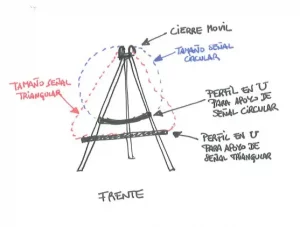 CIERRE MOVIL
TAMAÑO SEÑAL
CIRCULAR
TAMAÑO SEÑAL
TRIANGULAR
PERFIL EN U
PARA APOYO DE
SEÑAL CIRCULAR
PERFIL EN U
PARA APOYO DE
SEÑAL TRIANGULAR
FRENTE